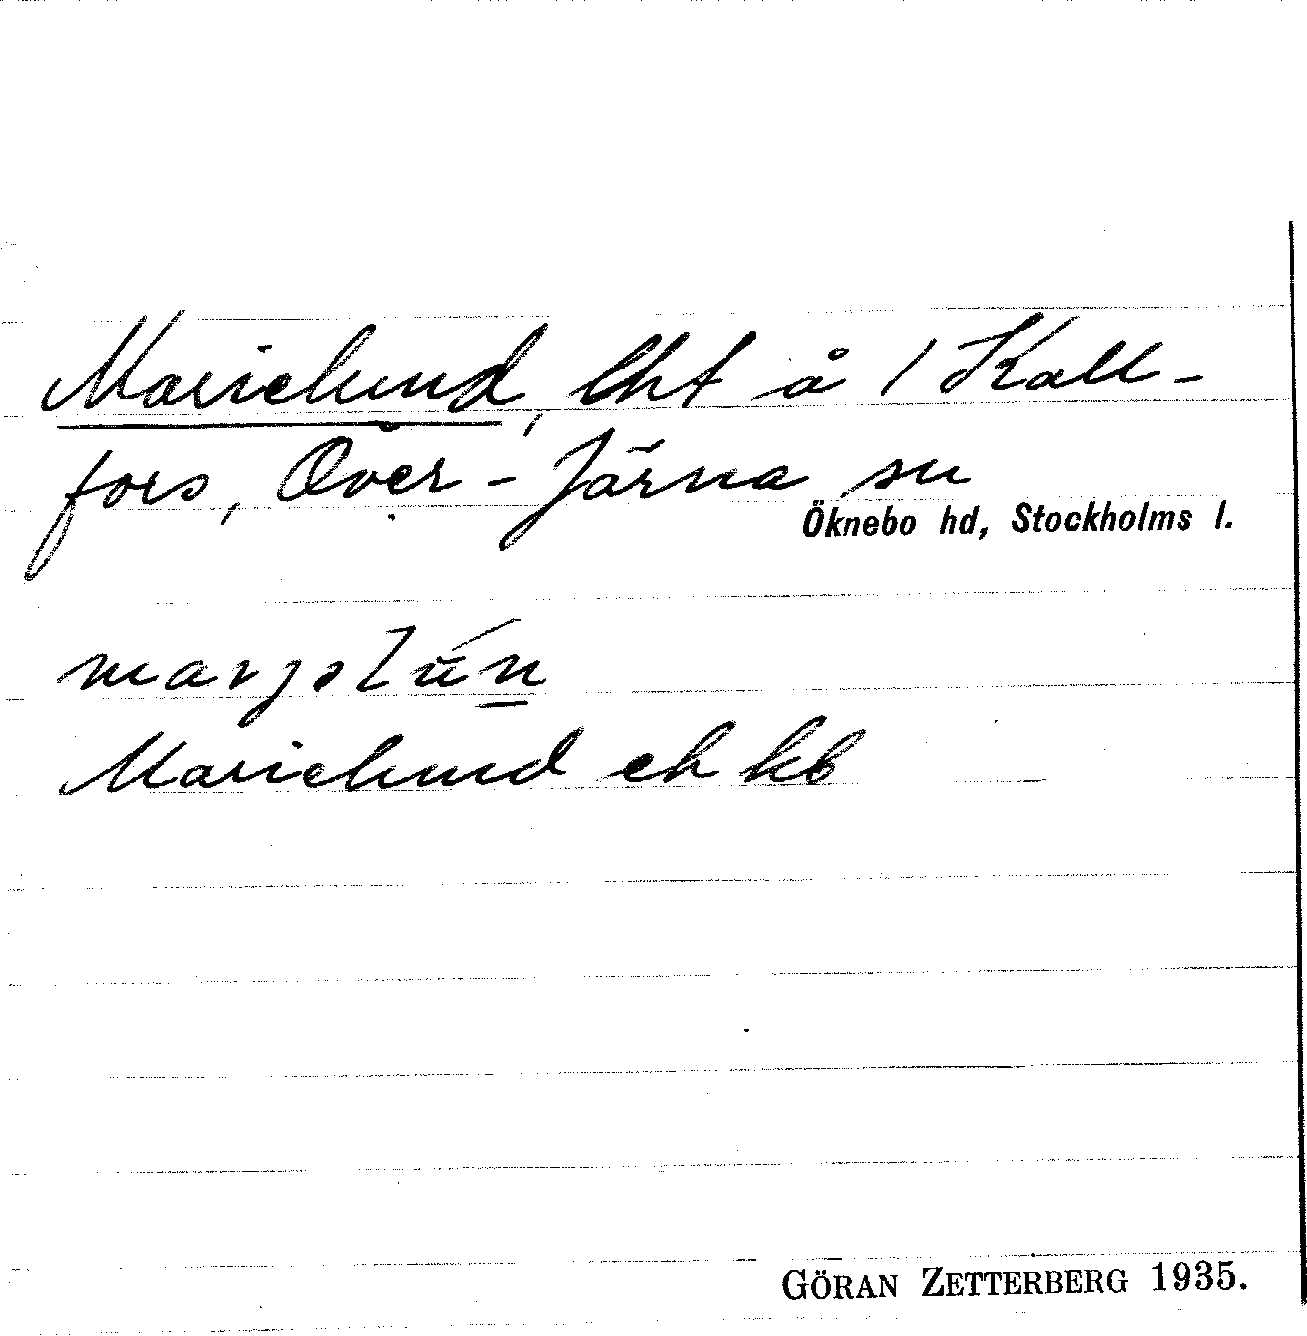 Marielund, lht å 1 Kall-
fors, Över-Järna sn
Öknebo hd, Stockholms l.
Marielund ek kb
GÖRAN ZETTERBERG 1935.